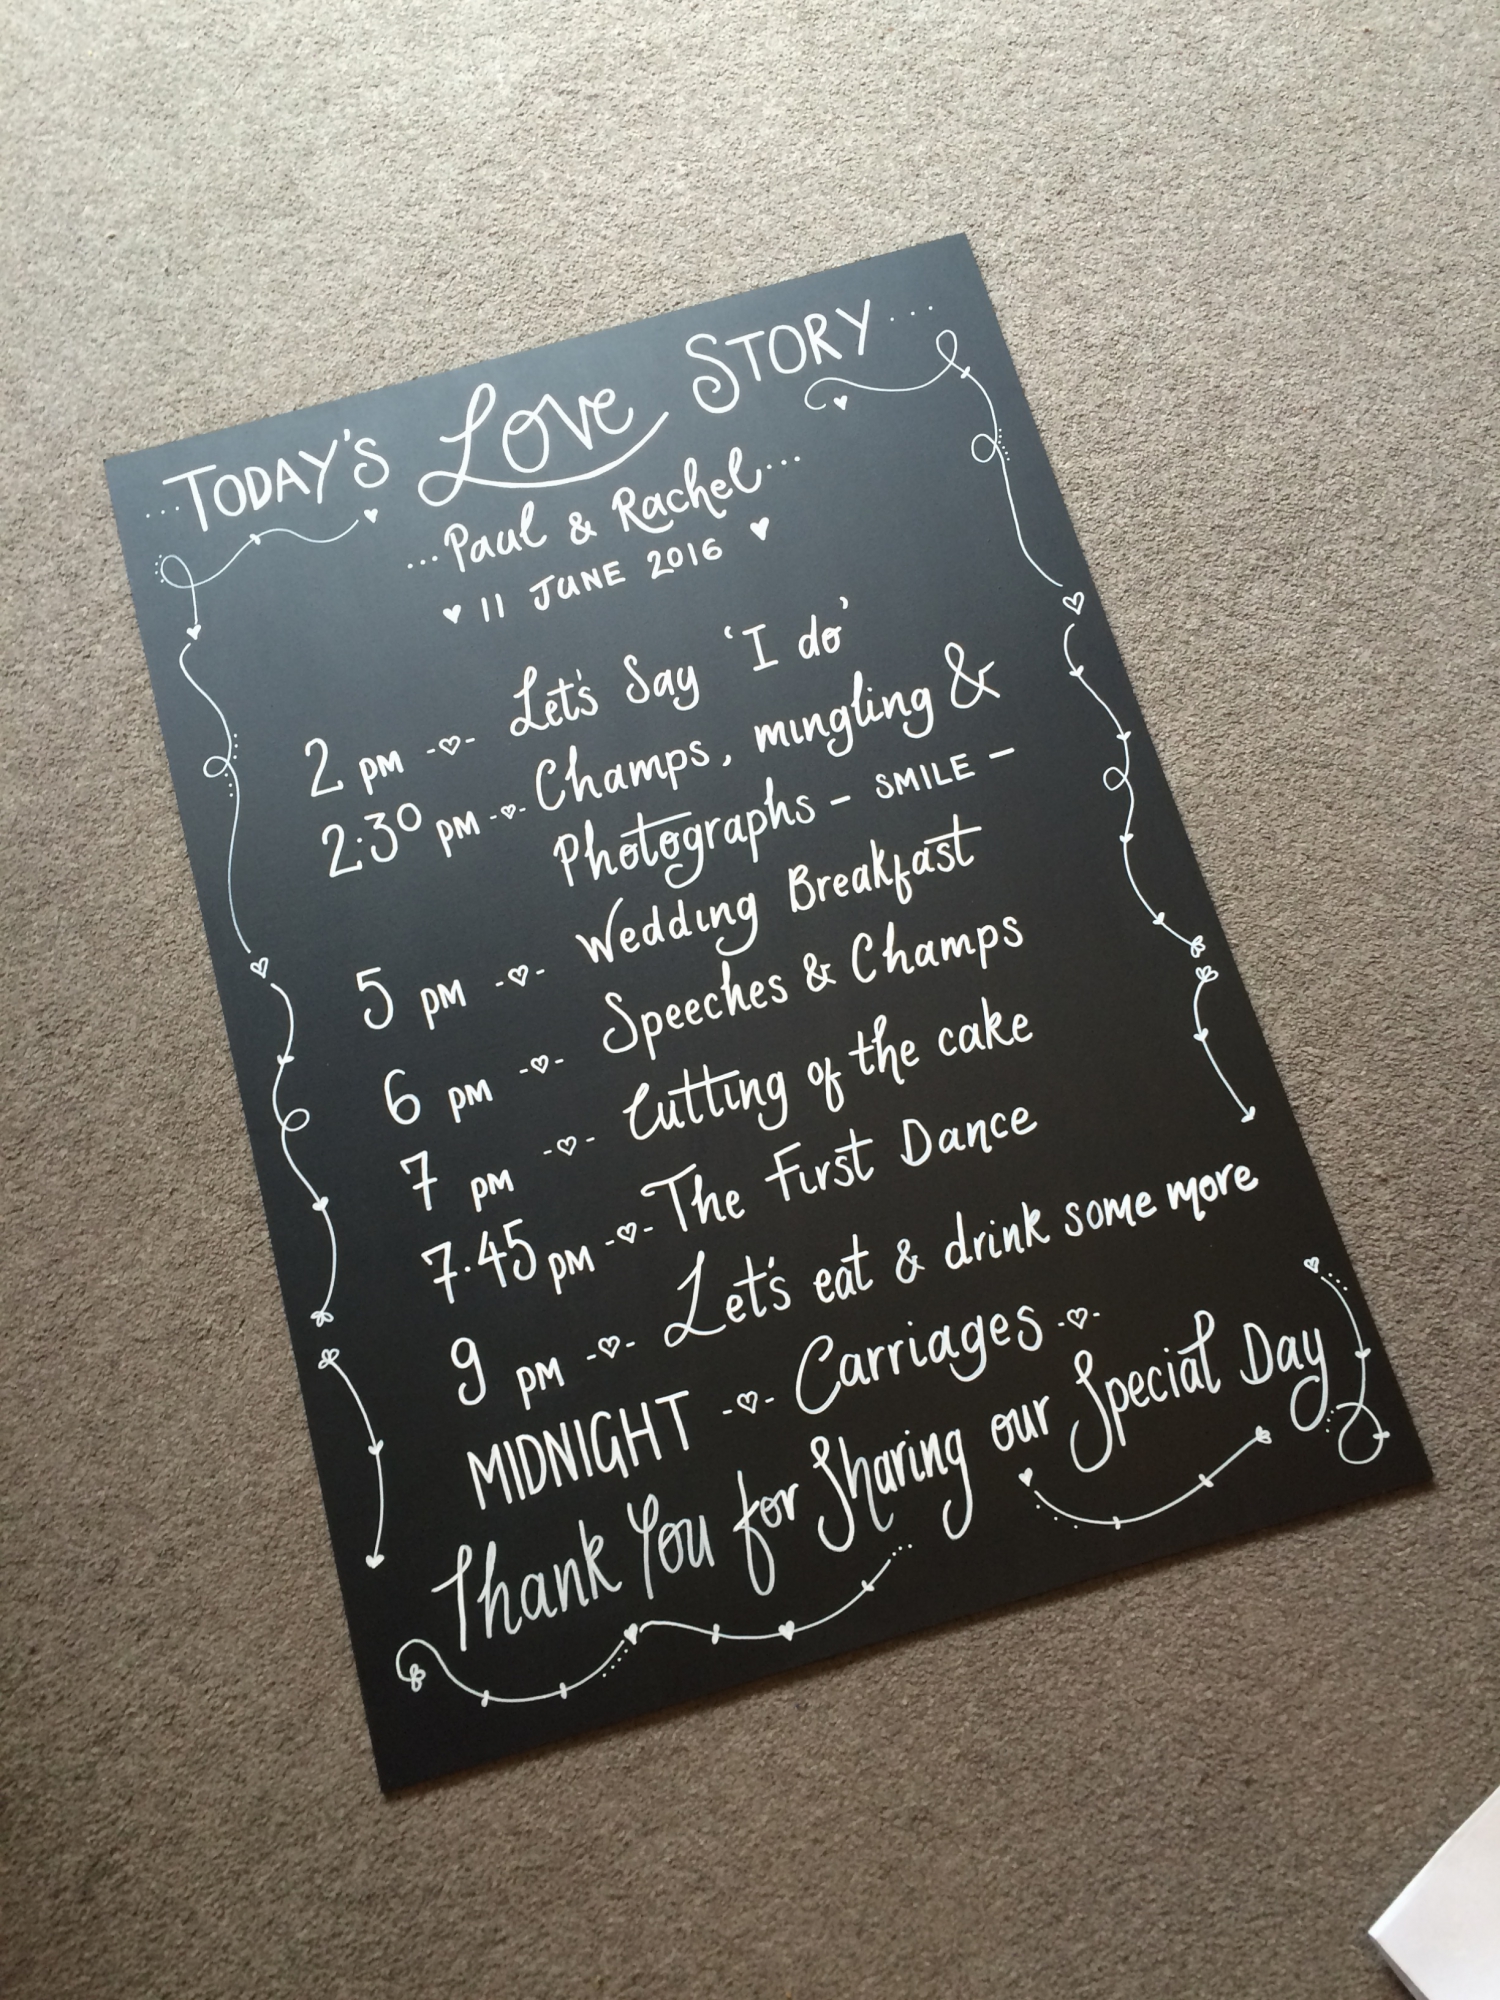 ...TODAY'S LOVE STORY...
...Paul & Rachel...
♥ 11 JUNE 2016 ♥
2 PM -♡- Let's Say 'I do'
2.30 PM -♡- Champs, mingling &
Photographs - SMILE -
5 PM -♡- Wedding Breakfast
6 PM -♡- Speeches & Champs
7 PM -♡- Cutting of the cake
7.45 PM -♡- The First Dance
9 PM -♡- Let's eat & drink some more
MIDNIGHT -♡- Carriages -♡-
Thank You for Sharing our Special Day